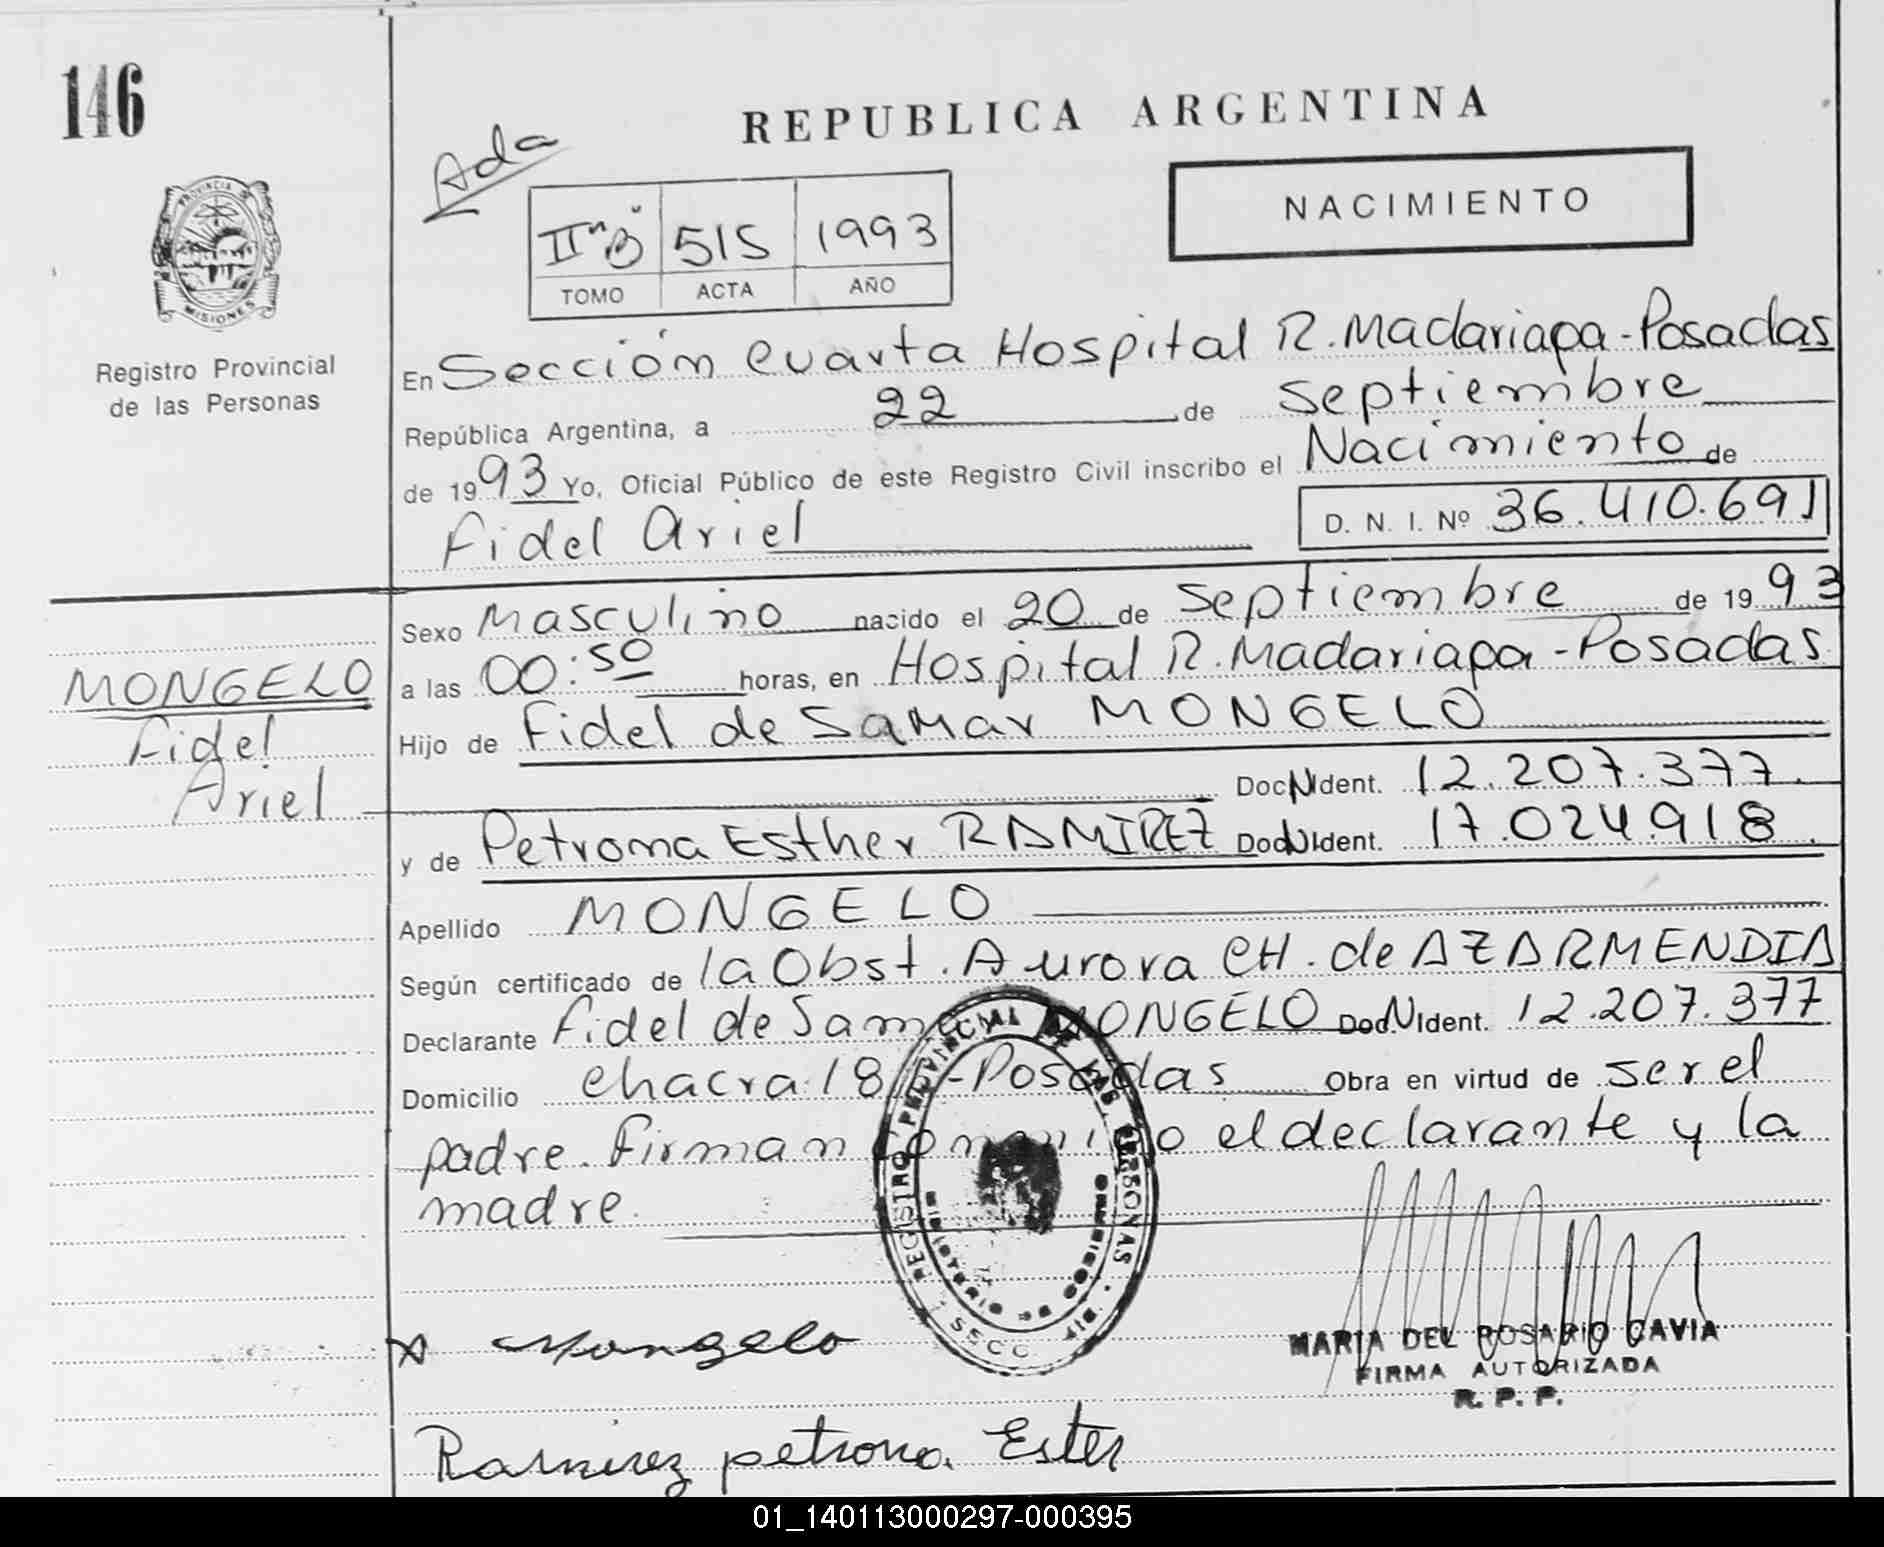 146
REPUBLICA ARGENTINA
Ada
NACIMIENTO
PROVINCIA DE
MISIONES
IIº"B" 515 1993
TOMO ACTA AÑO
Registro Provincial
de las Personas
En Sección cuarta Hospital R. Madariaga - Posadas
República Argentina, a 22 de septiembre
de 1993 Yo, Oficial Público de este Registro Civil inscribo el Nacimiento de
Fidel Ariel D. N. I. Nº 36.410.691
Sexo Masculino nacido el 20 de septiembre de 1993
a las 00:50 horas, en Hospital R. Madariaga - Posadas
MONGELO
Fidel
Ariel
Hijo de Fidel de Samar MONGELO
Doc N Ident. 12.207.377.
y de Petrona Esther RAMIREZ Doc N Ident. 17.024.918.
Apellido MONGELO
Según certificado de la Obst. Aurora CH. de AZARMENDIA
Declarante Fidel de Sam MONGELO Doc N Ident. 12.207.377
Domicilio chacra 18 - Posadas Obra en virtud de ser el
padre. Firman conmigo el declarante y la
madre.
REGISTRO PROVINCIAL DE LAS PERSONAS
MINISTERIO DE GOBIERNO
SECC
x Mongelo
MARIA DEL ROSARIO CAVIA
FIRMA AUTORIZADA
R. P. P.
Ramirez petrona. Ester
01_140113000297-000395